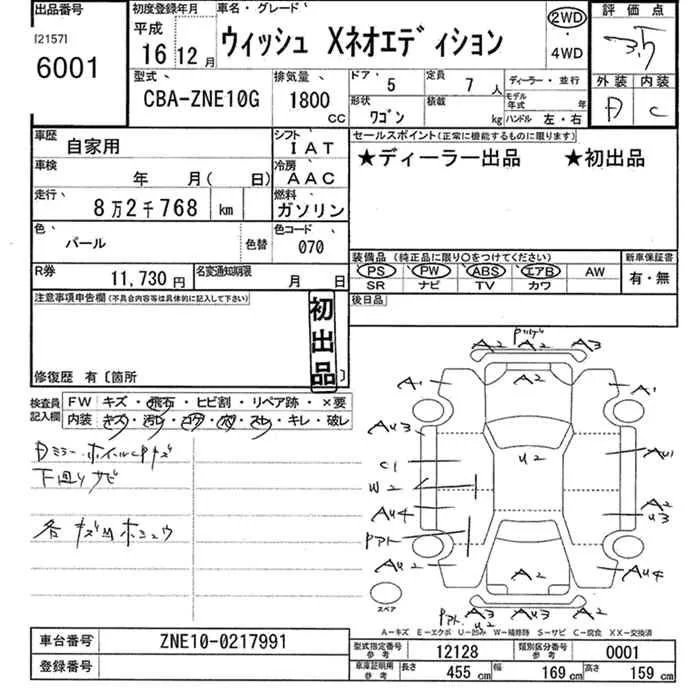 出品番号
[2157]
6001
初度登録年月
平成
16 12月
車名・グレード
ウィッシュ Xネオエディション
2WD
・
4WD
評価点
3.5
外装 内装
A C
型式
CBA-ZNE10G
排気量
1800
CC
ドア 5
定員 7 人
形状 ワゴン
積載 kg
ディーラー・並行
モデル年式 年
ハンドル 左・右
車歴 自家用
シフト IAT
車検 年 月( 日)
冷房 AAC
走行 8万2千768 km
燃料 ガソリン
色 パール 色替
色コード 070
R券 11,730 円
名変通知期限 月 日
セールスポイント(正常に機能するものに限ります)
★ディーラー出品 ★初出品
装備品 (純正品に限り○をつけてください)
新車保証書
PS PW ABS エアB AW
SR ナビ TV カワ
有・無
後日品
注意事項申告欄(不具合内容等は具体的に記入して下さい)
初出品
修復歴 有〔箇所 〕
検査員記入欄
FW キズ・飛石・ヒビ割・リペア跡・×要
内装 キズ・汚レ・コゲ・穴・スレ・キレ・破レ
下回りサビ
A2 A2 A3
A2
A1 A1
AU3
C1 U2 AU1
W2
AU4 A2
U3
AU2 AU4
A2
A3 AU3 A2
U2
スペア
A-キズ E-エクボ U-凹み W-補修跡 S-サビ C-腐食 XX-交換済
車台番号 ZNE10-0217991
登録番号
型式指定番号 参考 12128
類別区分番号 参考 0001
車庫証明用 参考 長さ 455 cm 幅 169 cm 高さ 159 cm